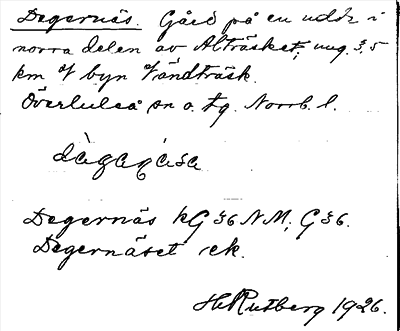 Degernäs. Gård på en udde i
norra delen av Alträsket, ung. 3,5
km of byn Sändträsk.
Överluleå sn o. tg. Norrb. l.
Degernäs kG 36 NM; G 36.
Degernäset ek.
H Rutberg 1926.